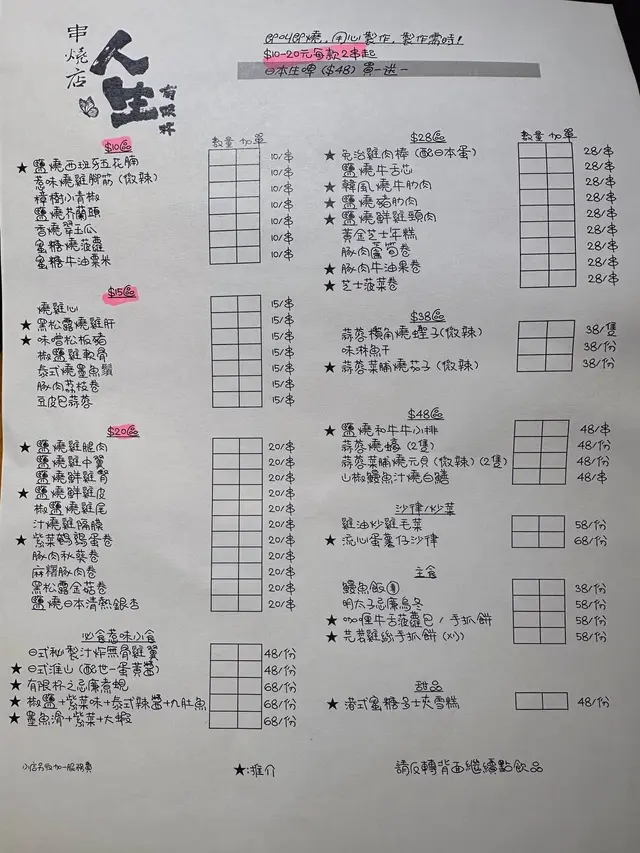 串燒店
人生
有限杯
即叫即燒，用心製作，製作需時！
$10-20元每款2串起
日本生啤 ($48) 買一送一
$10區 數量 加單
★ 鹽燒西班牙五花腩 10/串
惹味燒雞腳筋 (微辣) 10/串
樟樹小青椒 10/串
鹽燒芥蘭頭 10/串
香燒翠玉瓜 10/串
蜜糖燒菠蘿 10/串
蜜糖牛油粟米 10/串
$15區
燒雞心 15/串
★ 黑松露燒雞肝 15/串
★ 味噌松板豬 15/串
椒鹽雞軟骨 15/串
泰式燒墨魚鬚 15/串
豚肉荔枝卷 15/串
豆皮巴蒜蓉 15/串
$20區
★ 鹽燒雞腿肉 20/串
鹽燒雞中翼 20/串
鹽燒鮮雞腎 20/串
★ 鹽燒鮮雞皮 20/串
椒鹽燒雞尾 20/串
汁燒雞隔膜 20/串
★ 紫菜鵪鶉蛋卷 20/串
豚肉秋葵卷 20/串
麻糬豚肉卷 20/串
黑松露金菇卷 20/串
鹽燒日本清熱銀杏 20/串
必食惹味小食
日式秘製汁炸無骨雞翼 48/份
★ 日式淮山 (配世一蛋黃醬) 48/份
★ 有限杯之忌廉煮蜆 68/份
★ 椒鹽+紫菜味+泰式辣醬+九肚魚 68/份
★ 墨魚滑+紫菜+大蝦 68/份
$28區 數量 加單
★ 免治雞肉棒 (配日本蛋) 28/串
鹽燒牛舌芯 28/串
★ 韓風燒牛肋肉 28/串
★ 鹽燒豬肋肉 28/串
★ 鹽燒鮮雞頸肉 28/串
黃金芝士年糕 28/串
豚肉蘆筍卷 28/串
★ 豚肉牛油果卷 28/串
★ 芝士菠菜卷 28/串
$38區
蒜蓉欖角燒蟶子(微辣) 38/隻
味淋魚干 38/份
★ 蒜蓉菜脯燒茄子 (微辣) 38/份
$48區
★ 鹽燒和牛牛小排 48/串
蒜蓉燒蠔 (2隻) 48/份
蒜蓉菜脯燒元貝 (微辣) (2隻) 48/份
山椒鰻魚汁燒白鱔 48/串
沙律/炒菜
雞油炒雞毛菜 58/份
★ 流心蛋薯仔沙律 68/份
主食
鰻魚飯 38/份
明太子忌廉烏冬 58/份
★ 咖喱牛舌菠蘿包 / 手抓餅 58/份
★ 芫荽雞絲手抓餅 (XO) 58/份
甜品
★ 港式蜜糖多士夾雪糕 48/份
小店另收加一服務費
★:推介
請反轉背面繼續點飲品